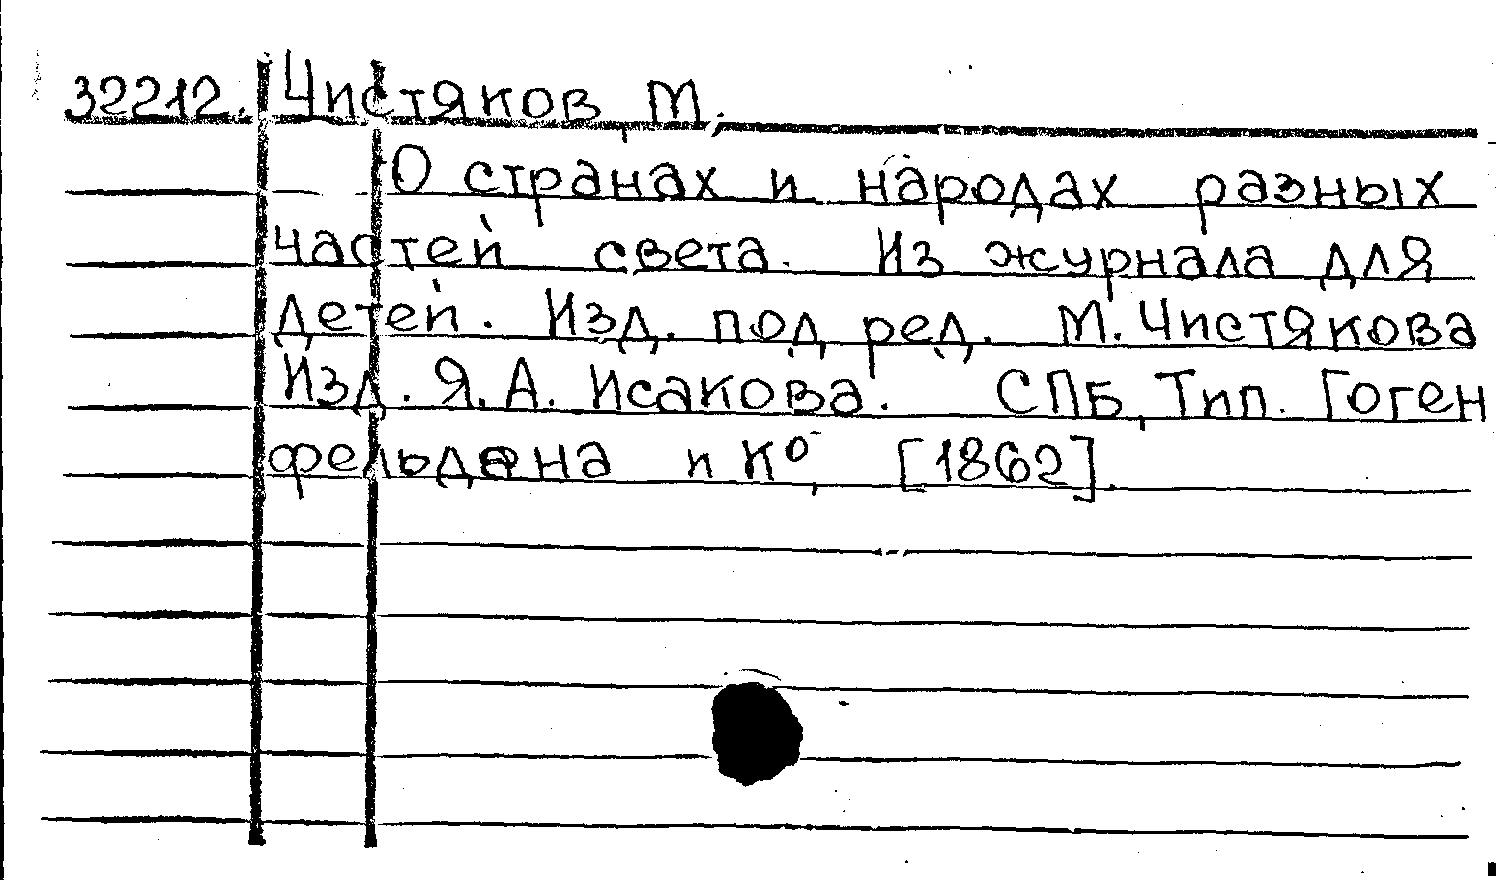 32212. Чистяков, М.
О странах и народах разных
частей света. Из журнала для
детей. Изд. под ред. М. Чистякова
Изд. Я. А. Исакова. СПБ, Тип. Гоген
фельдена и К°, [1862].